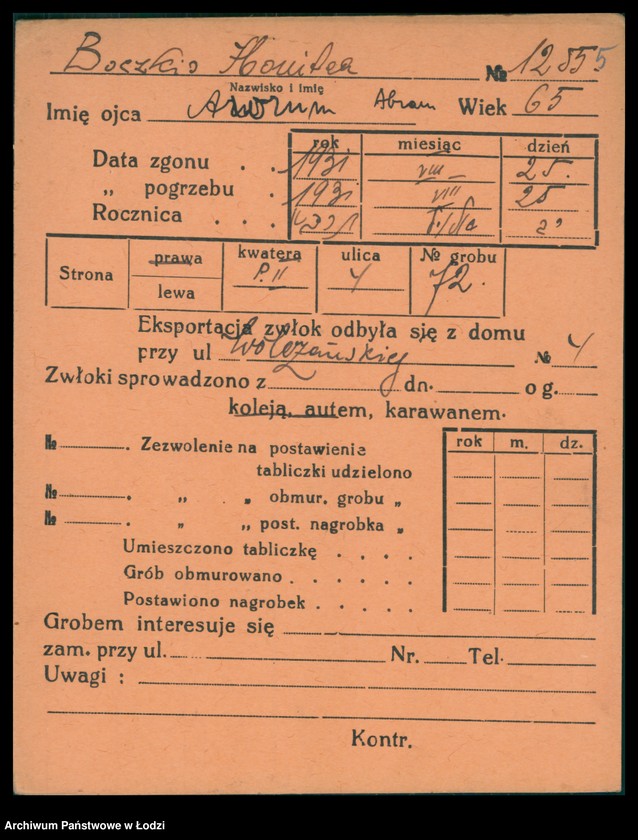 Boczkis № 12855
Nazwisko i Imię
Imię ojca Abram Wiek 65
rok miesiąc dzień
Data zgonu . . 1931 VIII 25.
„ pogrzebu . 1931 VIII 25
Rocznica . . .
Strona prawa kwatera ulica № grobu
lewa P. II 4 72.
Eksportacja zwłok odbyła się z domu
przy ul Wólczańskiej № 4
Zwłoki sprowadzono z dn. o g.
koleją, autem, karawanem.
rok m. dz.
№ . Zezwolenie na postawienie
tabliczki udzielono
№ . „ „ obmur. grobu „
№ . „ „ post. nagrobka „
Umieszczono tabliczkę . . . .
Grób obmurowano . . . . . .
Postawiono nagrobek . . . . .
Grobem interesuje się
zam. przy ul. Nr. Tel.
Uwagi :
Kontr.
Archiwum Państwowe w Łodzi